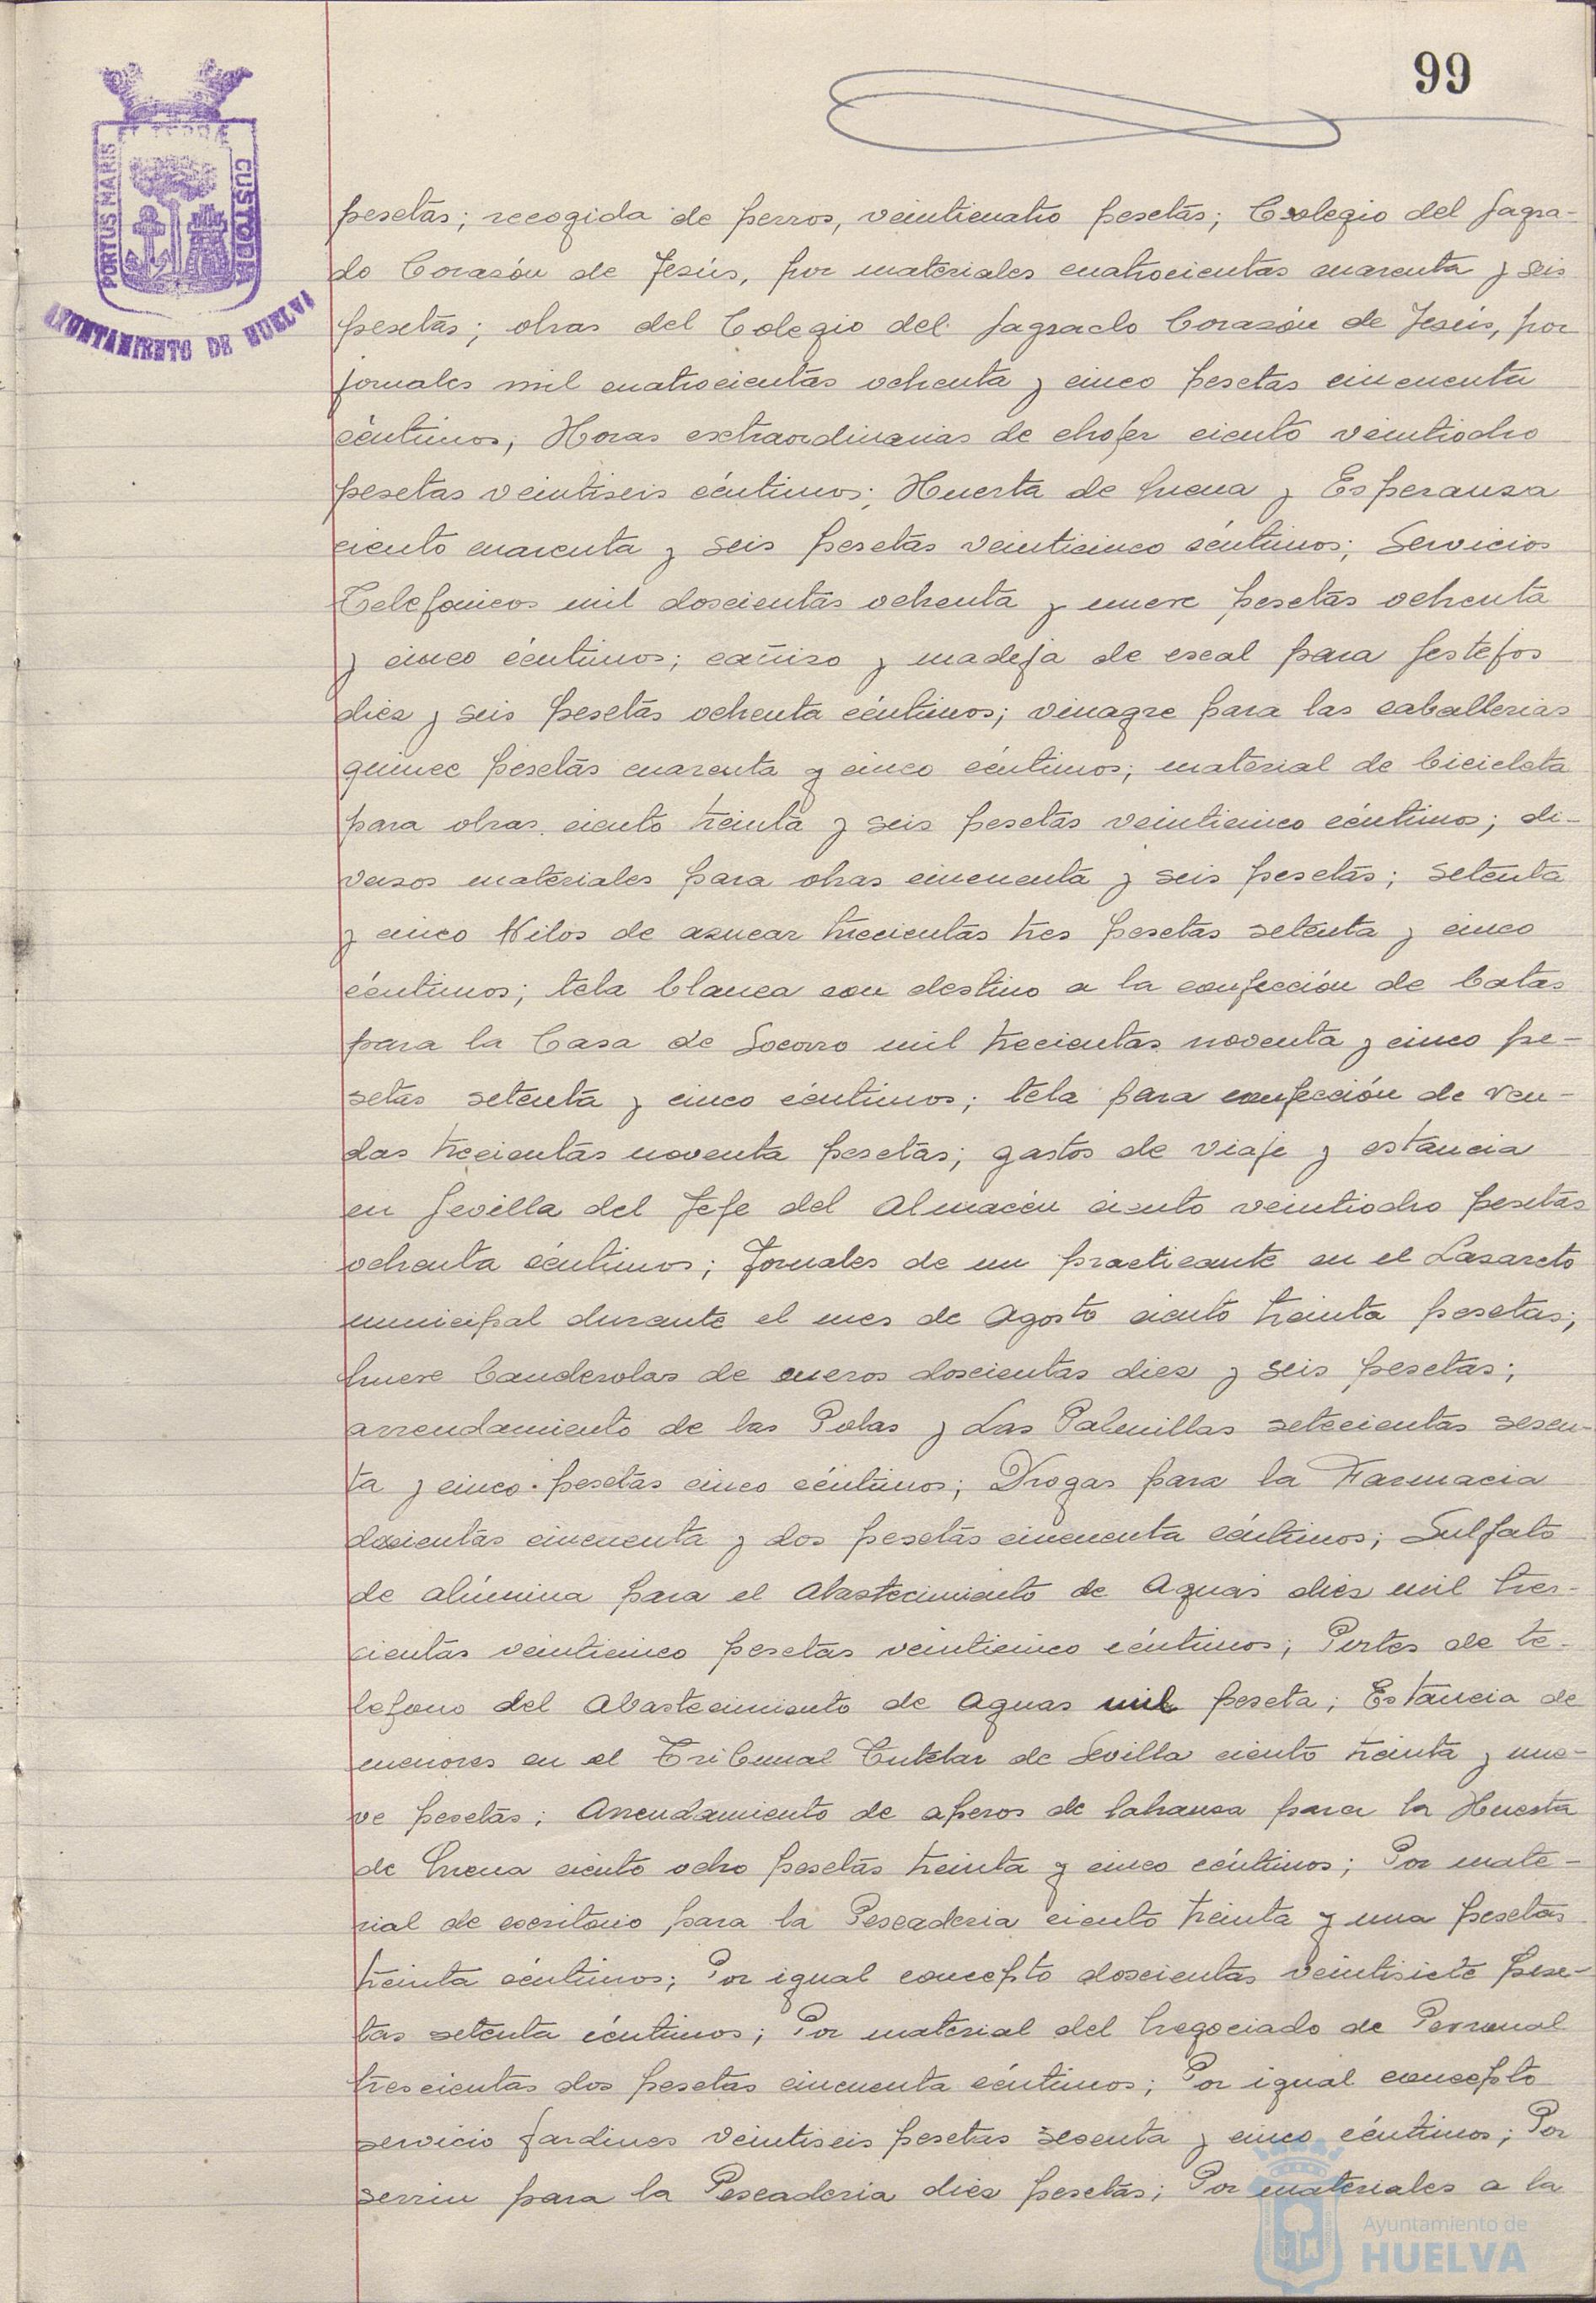 99
PORTUS MARIS
CUSTODIA
AYUNTAMIENTO DE HUELVA
pesetas; recogida de perros, veinticuatro pesetas; Colegio del Sagra-
do Corazón de Jesús, por materiales cuatrocientas cuarenta y seis
pesetas; obras del Colegio del Sagrado Corazón de Jesús, por
jornales mil cuatrocientas ochenta y cinco pesetas cincuenta
céntimos, Horas extraordinarias de chofer ciento veintiocho
pesetas veintiseis céntimos; Huerta de Mena y Esperanza
ciento cuarenta y seis pesetas veinticinco céntimos; Servicios
Telefonicos mil doscientas ochenta y nueve pesetas ochenta
y cinco céntimos; cañizo y madeja de para festejos
diez y seis pesetas ochenta céntimos; vinagre para las caballerias
quince pesetas cuarenta y cinco céntimos; material de bicicleta
para obras ciento treinta y seis pesetas veinticinco céntimos; di-
versos materiales para obras cincuenta y seis pesetas; setenta
y cinco Kilos de azucar trecientas tres pesetas setenta y cinco
céntimos; tela blanca con destino a la confección de batas
para la Casa de Socorro mil trecientas noventa y cinco pe-
setas setenta y cinco céntimos; tela para confección de ven-
das trecientas noventa pesetas; gastos de viaje y estancia
en Sevilla del Jefe del Almacén ciento veintiocho pesetas
ochenta céntimos; Jornales de un practicante en el Lazareto
municipal durante el mes de Agosto ciento treinta pesetas;
nueve banderolas de cueros doscientas diez y seis pesetas;
arrendamiento de las Polas y Las Palmillas setecientas sesen-
ta y cinco pesetas cinco céntimos; Drogas para la Farmacia
doscientas cincuenta y dos pesetas cincuenta céntimos; Sulfato
de alúmina para el Abastecimiento de Aguas diez mil tres-
cientas veinticinco pesetas veinticinco céntimos; Portes de te-
lefono del Abastecimiento de Aguas mil peseta; Estancia de
menores en el Tribunal Tutelar de Sevilla ciento treinta y nue-
ve pesetas; Arrendamiento de aperos de labranza para la Huerta
de Mena ciento ocho pesetas treinta y cinco céntimos; Por mate-
rial de escritorio para la Pescaderia ciento treinta y una pesetas
treinta céntimos; Por igual concepto doscientas veintisiete pese-
tas setenta céntimos; Por material del Negociado de Personal
trescientas dos pesetas cincuenta céntimos; Por igual concepto
servicio Jardines veintiseis pesetas sesenta y cinco céntimos; Por
serrin para la Pescaderia diez pesetas; Por materiales a la
Ayuntamiento de
HUELVA